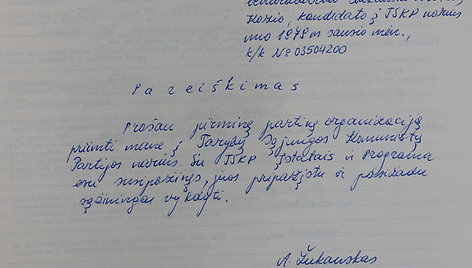 Kazio, kandidato į TSKP narius
nuo 1979 m sausio mėn.,
k/k № 03504200
Pareiškimas
Prašau pirminę partinę organizaciją
priimti mane į Tarybų Sąjungos Komunistų
Partijos narius. Su TSKP Įstatais ir Programa
esu susipažinęs, juos pripažįstu ir pasižadu
sąžiningai vykdyti.
A. Žukauskas